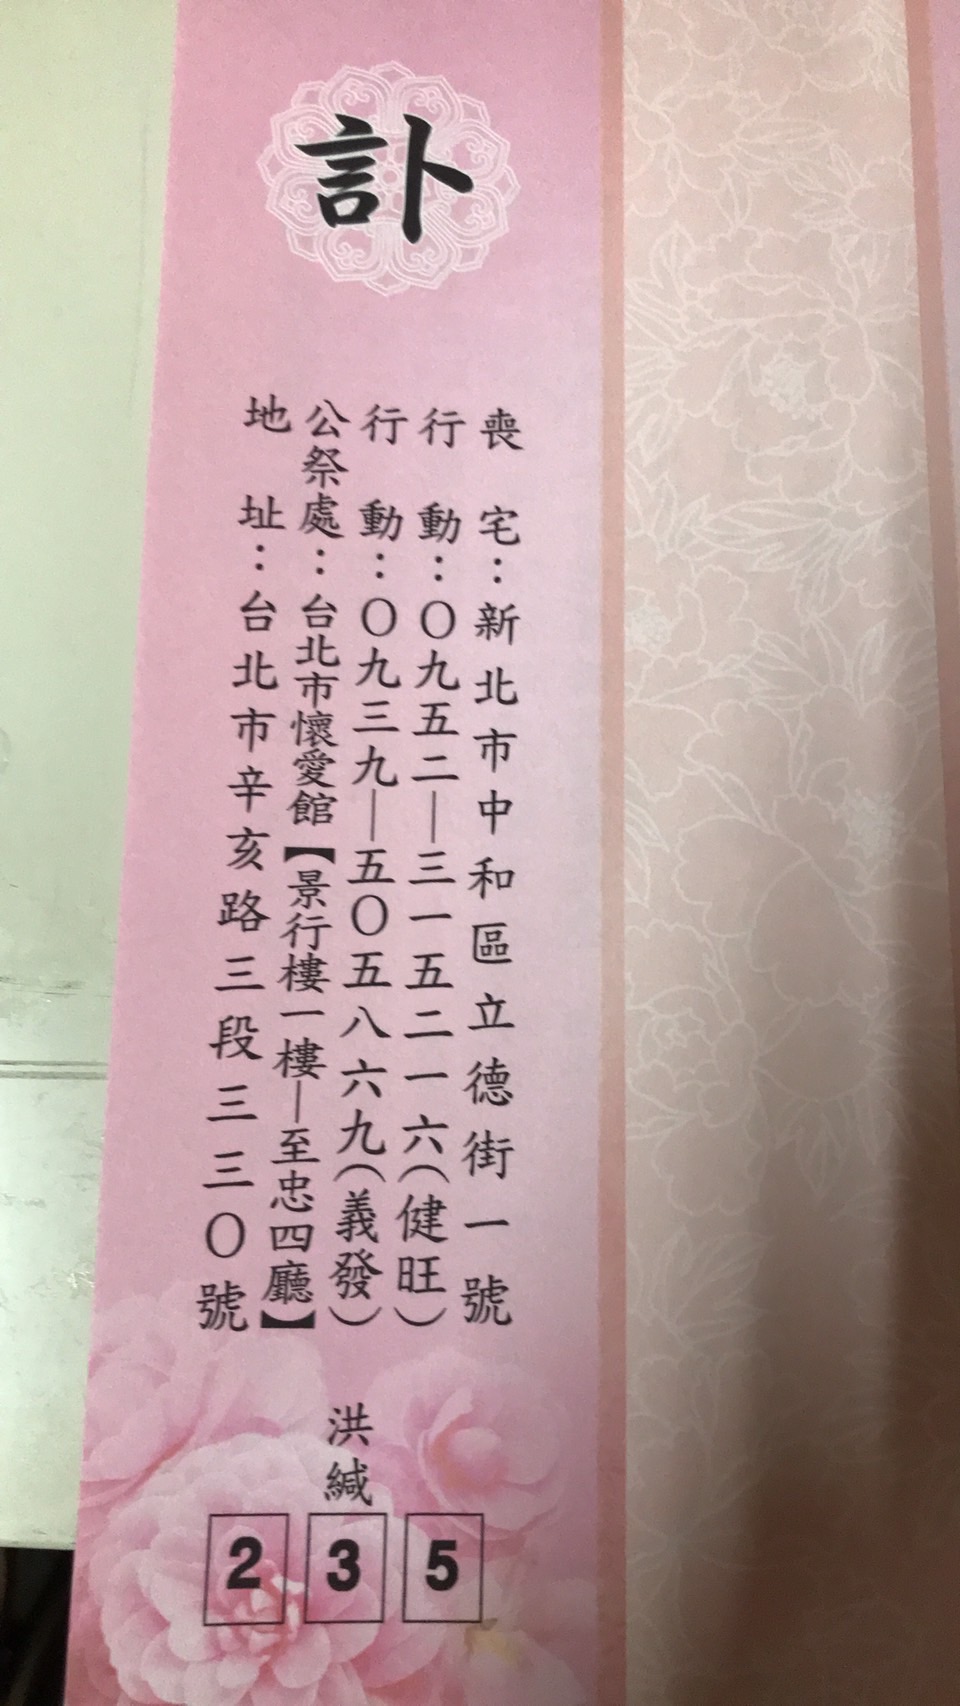 訃
喪宅：新北市中和區立德街一號
行動：〇九五二—三一五二一六（健旺）
行動：〇九三九—五〇五八六九（義發）
公祭處：台北市懷愛館【景行樓一樓—至忠四廳】
地址：台北市辛亥路三段三三〇號
洪緘
235